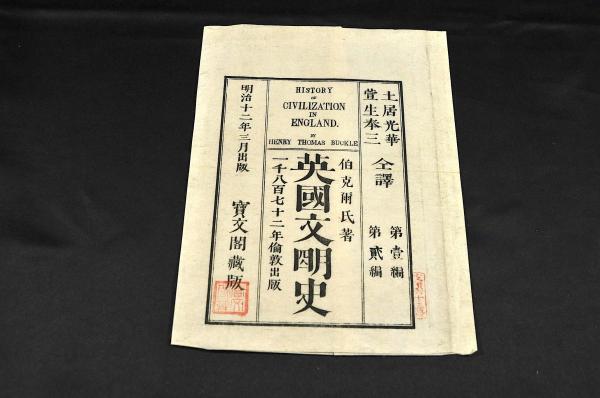 土居光華
萱生奉三
仝譯
第壹編
第貳編
HISTORY
OF
CIVILIZATION
IN
ENGLAND.
BY
HENRY THOMAS BUCKLE
伯克爾氏著
英國文明史
一千八百七十二年倫敦出版
明治十二年三月出版
寶文閣藏版